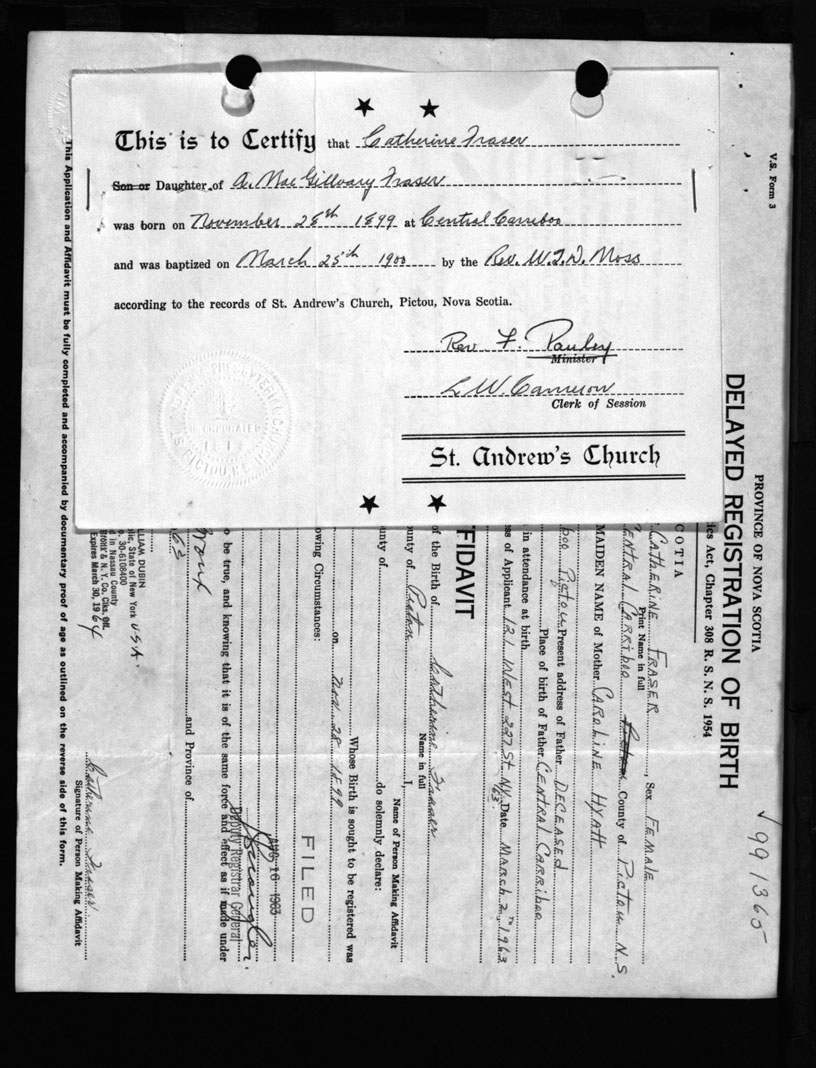 This is to Certify that Catherine Fraser
Son or Daughter of A. MacGillvary Fraser
was born on November 28th 1899 at Central Carriboo
and was baptized on March 25th 1900 by the Rev. W.T.D. Moss
according to the records of St. Andrew's Church, Pictou, Nova Scotia.
Rev. F. Pauley
Minister
L W Cameron
Clerk of Session
St. Andrew's Church
V.S. Form 3
991365
PROVINCE OF NOVA SCOTIA
DELAYED REGISTRATION OF BIRTH
ics Act, Chapter 308 R. S. N. S. 1954
COTIA
CATHERINE FRASER, Sex FEMALE
Print Name in full
ENTRAL CARRIBOO County of PICTOU N.S.
MAIDEN NAME of Mother CAROLINE HYATT
boo Pictou Present address of Father DECEASED
Place of birth of Father CENTRAL CARRIBOO
in attendance at birth
ss of Applicant 121 WEST 227 ST. NY. 63. Date MARCH 2, 1963
FIDAVIT
of the Birth of Catherine Fraser
Name in full
ounty of Pictou I,
Name of Person Making Affidavit
unty of do solemnly declare:
Whose Birth is sought to be registered was
on Nov. 28 1899
owing Circumstances:
FILED
AUG 16 1963
Deputy Registrar General
o be true, and knowing that it is of the same force and effect as if made under
Bronx
and Province of
63
LLIAM DUBIN
blic, State of New York U.S.A.
o. 30-6108400
d in Nassau County
Bronx & N. Y. Co. Clks. Off.
Expires March 30, 1964
Catherine Fraser
Signature of Person Making Affidavit
This Application and Affidavit must be fully completed and accompanied by documentary proof of age as outlined on the reverse side of this form.